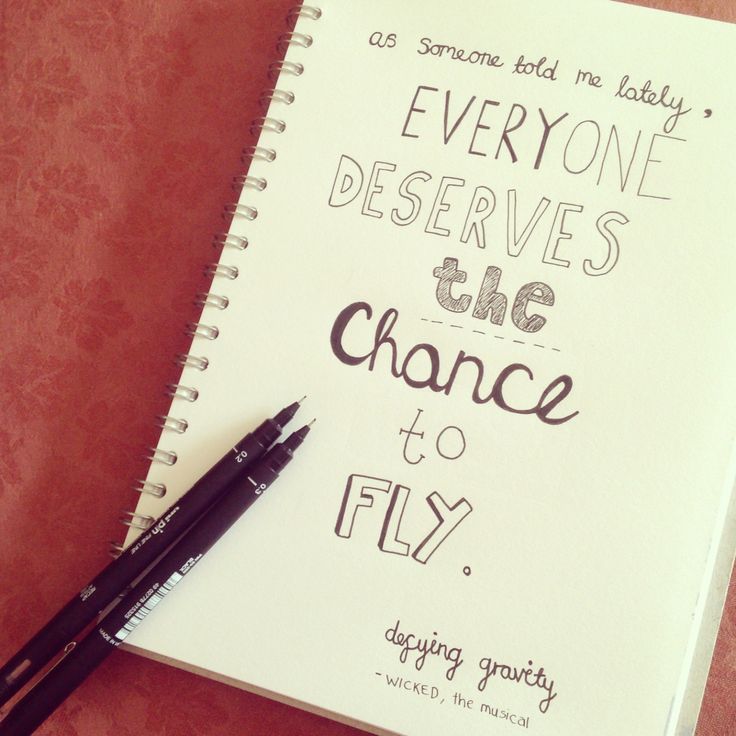 as someone told me lately,
EVERYONE
DESERVES
the
Chance
to
FLY.
defying gravity
- WICKED, the musical
0.2
0.3
uni pin FINE LINE